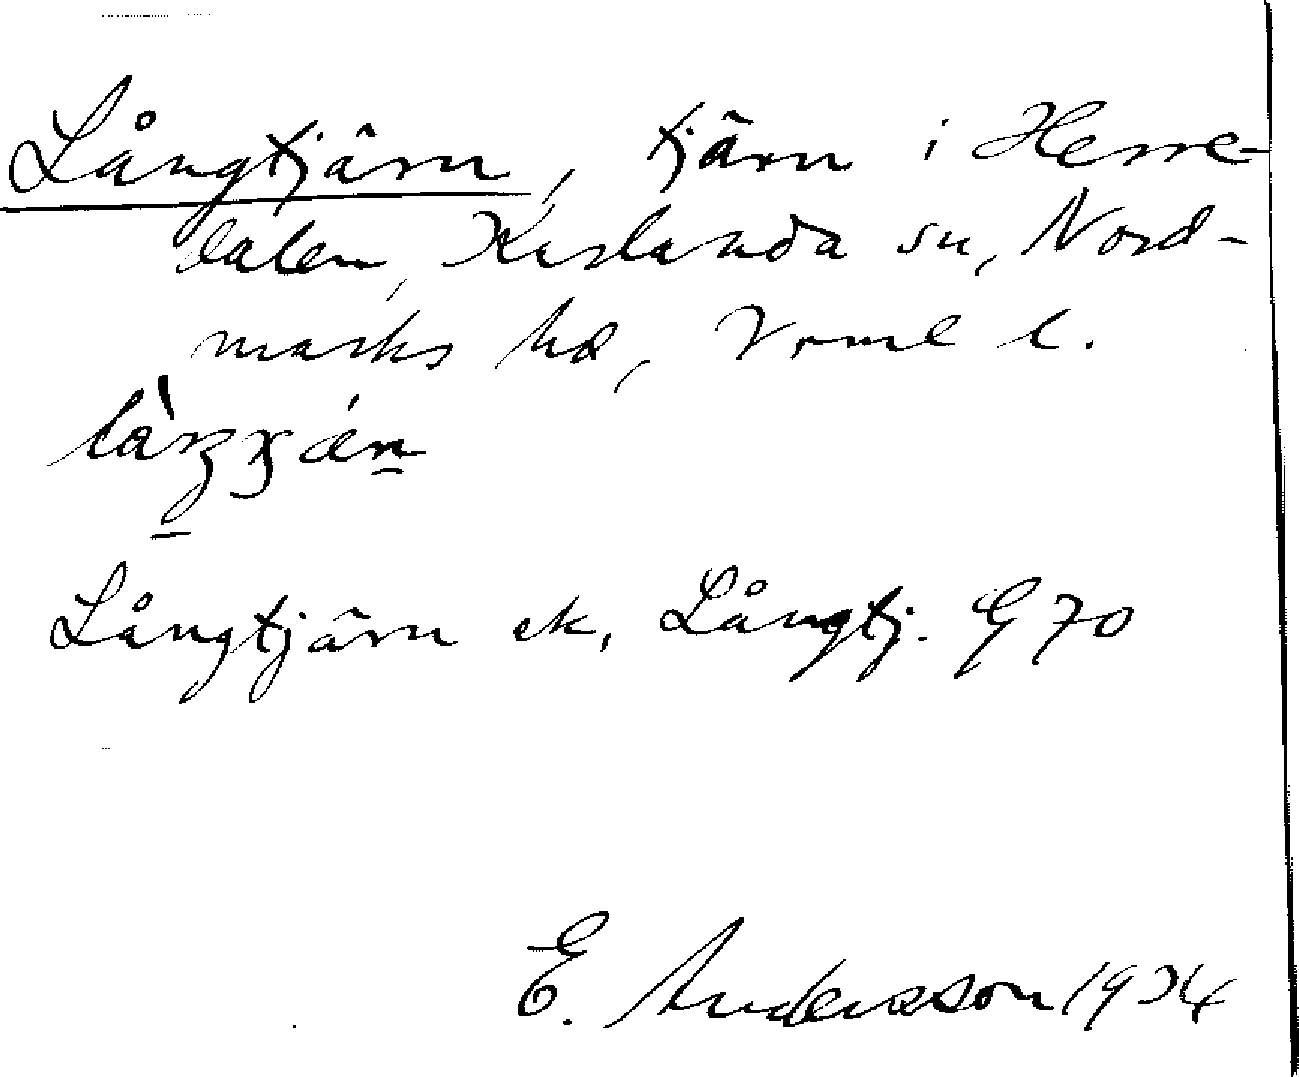 Långtjärn, tjärn i Herre-
dalen, Karlanda sn, Nord-
marks hd, Vrml l.
Långtjärn ek, Långtj. G 70
E. Andersson 1934